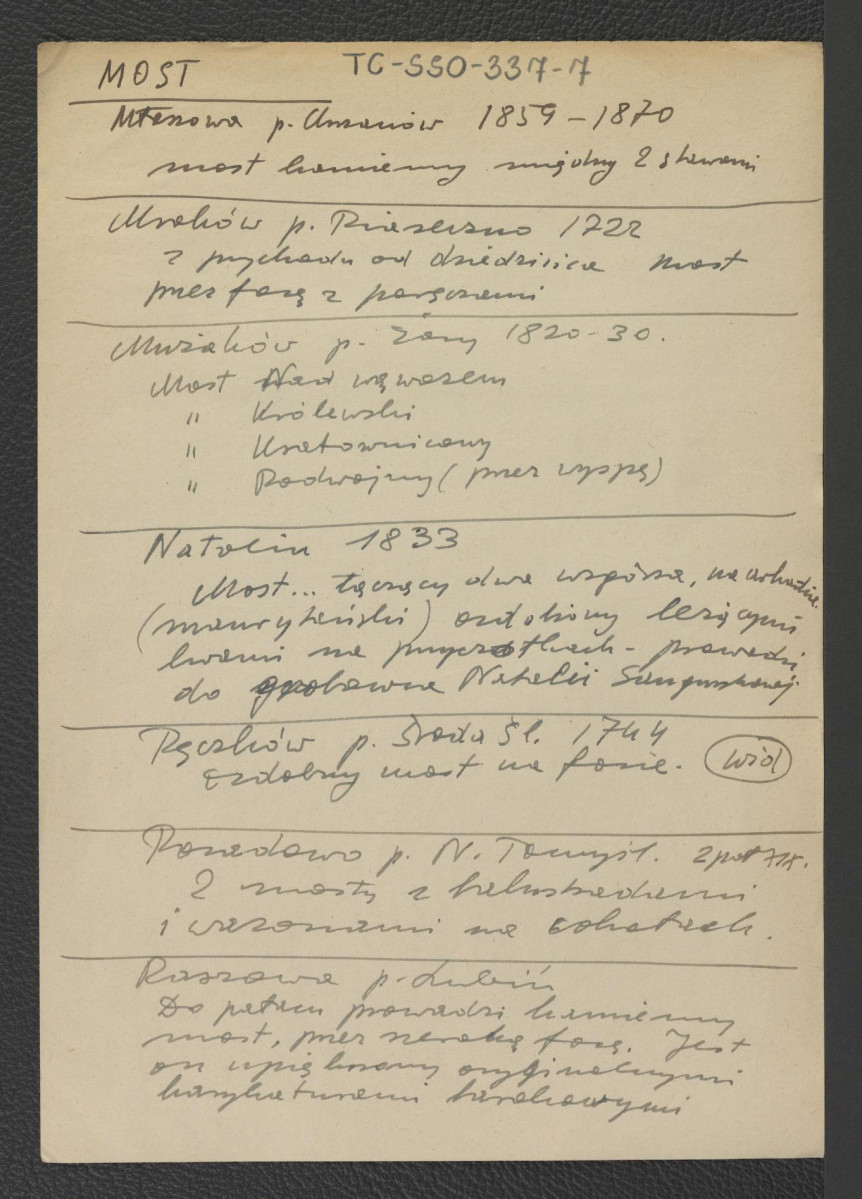 MOST TC-SSO-337-7
p. Chrzanów 1859-1870
most kamienny między 2 stawami
Mroków p. Piaseczno 1722
z przychodu od dziedzińca most
przez fosę z poręczami
Mużaków p. Żary 1820-30.
Most Nad wąwozem
" Królewski
"
" Podwójny (przez wyspę)
Natolin 1833
Most... łączący dwa wzgórza, na arkadzie.
(mauretański) ozdobiony leżącymi
lwami na przyczółkach - prowadzi
do grobowca Natalii Sanguszkowej
p. Środa Śl. 1744
ozdobny most na fosie. (wid)
Posadowo p. N. Tomyśl. 2 poł XIX.
2 mosty z balustradami
i wazonami na cokołach.
Raszowa p. Lubin
Do pałacu prowadzi kamienny
most, przez szeroką fosę. Jest
on upiększony oryginalnymi
karykaturami barokowymi